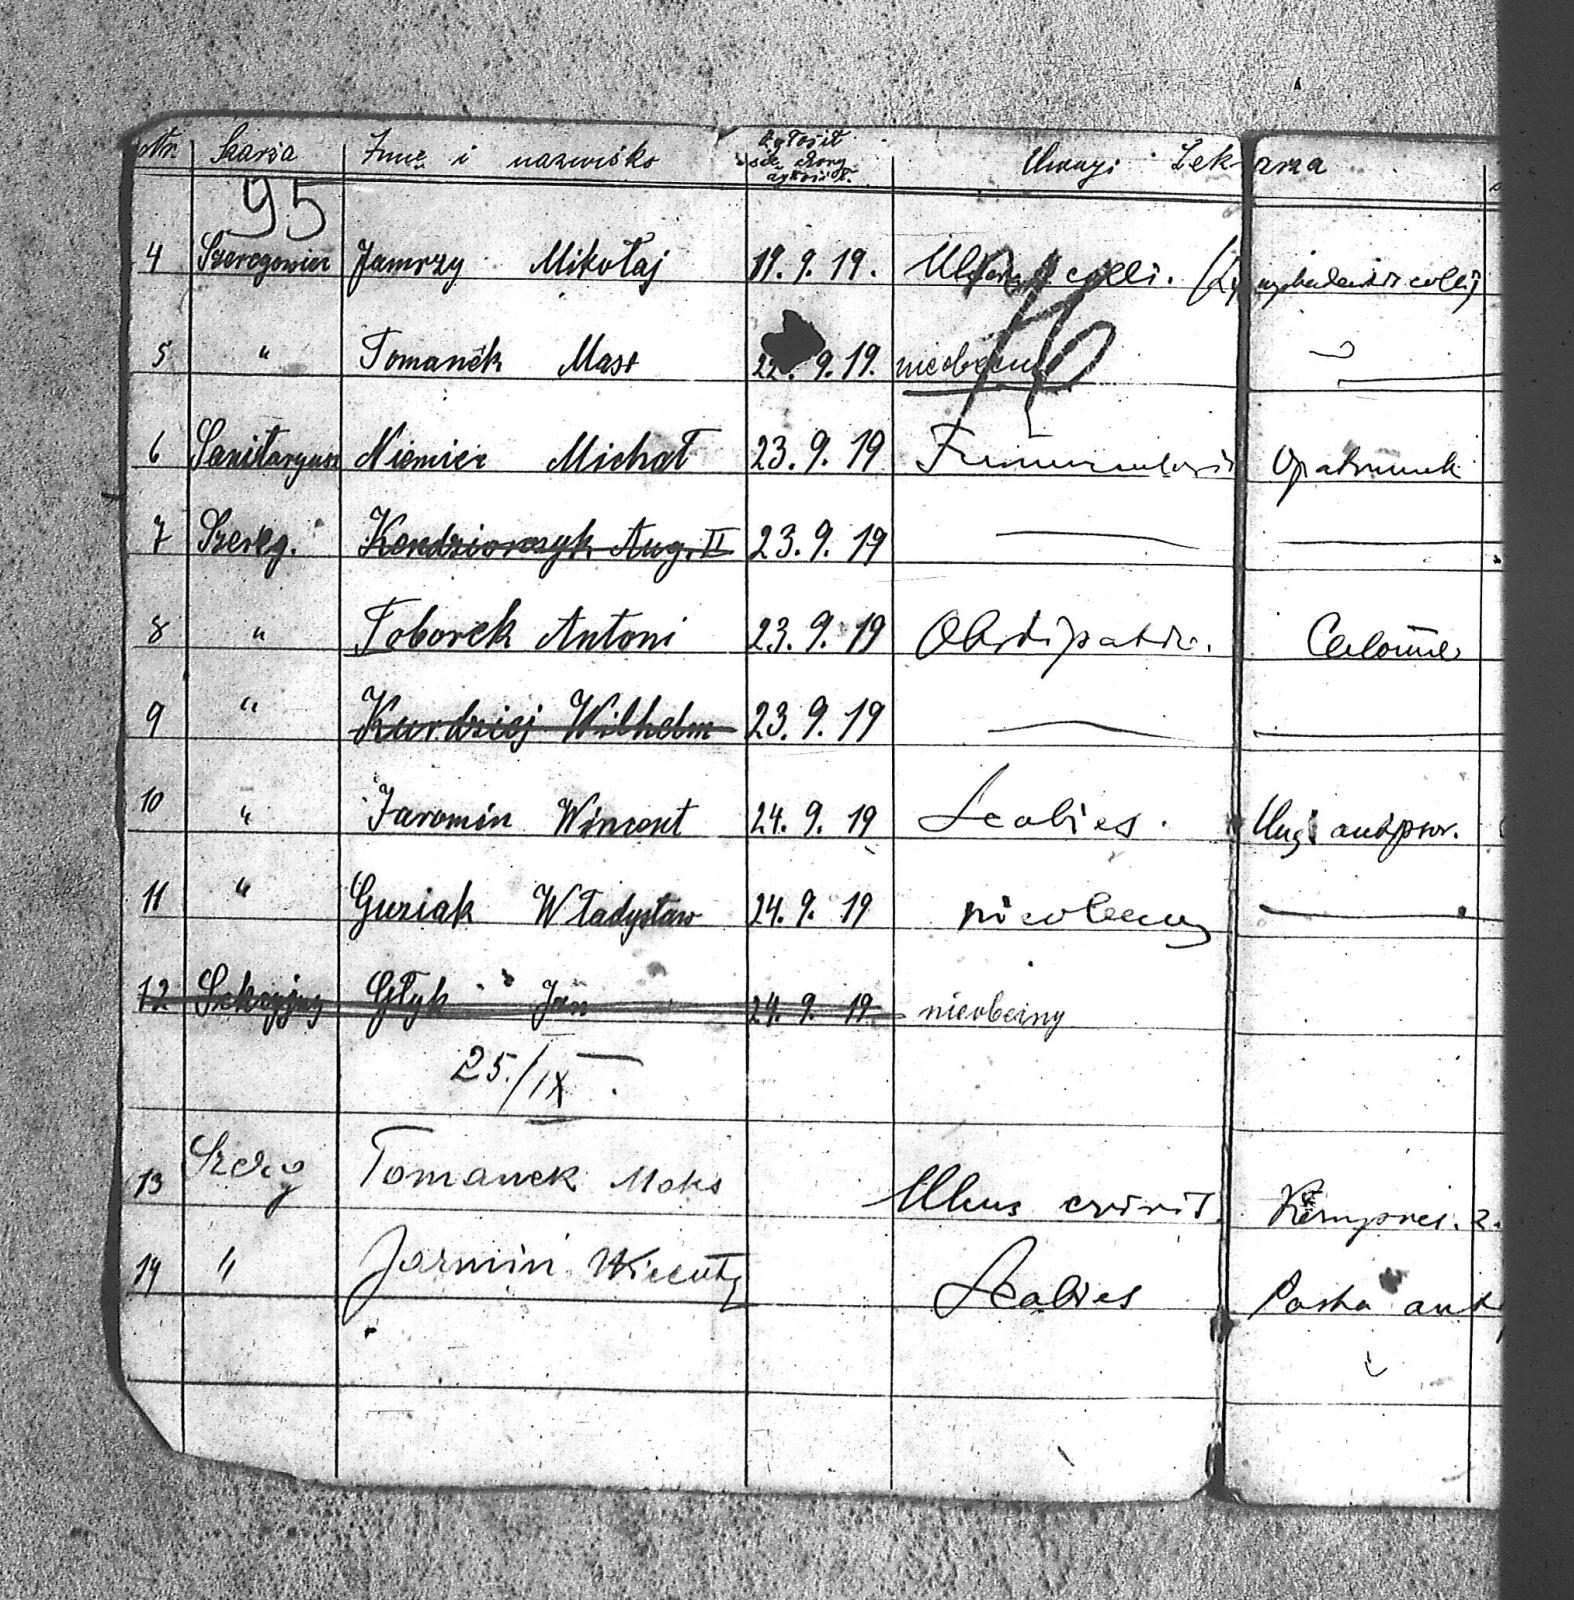 Nr. Szarża Imię i nazwisko Zgłosił się chory Uwagi Lekarza
95
4 Szeregowiec Jamrzy Mikołaj 19. 9. 19. colli.
5 " Tomanek Max 22. 9. 19. nieobecny
6 Sanitaryusz Niemiec Michał 23. 9. 19 Opatrunek
7 Szereg. Kendziorczyk Aug. II 23. 9. 19
8 " Toborek Antoni 23. 9. 19 Obstipatio.
9 " Kurdziej Wilhelm 23. 9. 19
10 " Jaromin Wincent 24. 9. 19 Scabies.
11 " Guziak Władysław 24. 9. 19 nieobecny
12 Głyk Jan 24. 9. 19 nieobecny
25./IX
13 Szereg Tomanek Maks Ulcus
14 " Jarmin Wicenty Scabies Pasta